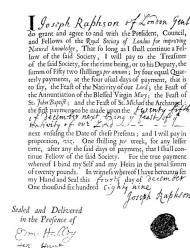 I Joseph Raphson of London Gent
do grant and agree to and with the President, Council,
and Fellows of the Royal Society of London for improving
Natural knowledge, That so long as I shall continue a Fel-
low of the said Society, I will pay to the Treasurer
of the said Society, for the time being, or to his Deputy, the
summ of fifty two shillings per annum; by four equal Quar-
terly payments, at the four usual days of payment, that is
to say, the Feast of the Nativity of our Lord; the Feast of
the Annunciation of the Blessed Virgin Mary; the Feast of
St. John Baptist; and the Feast of St. Michael the Archangel:
the first payment to be made upon the
of december next being feast of
Nativity of our Lord
next ensuing the Date of these Presents; and I will pay in
proportion, viz. One shilling per week, for any lesser
time, after any the said days of payment, that I shall con-
tinue Fellow of the said Society. For the true payment
whereof I bind my Self and my Heirs in the penal summ
of twenty pounds. In witness whereof I have hereunto set
my Hand and Seal this fourth day of december
One thousand six hundred Eighty nine
Joseph Raphson
Sealed and Delivered
in the Presence of
Edm. Halley